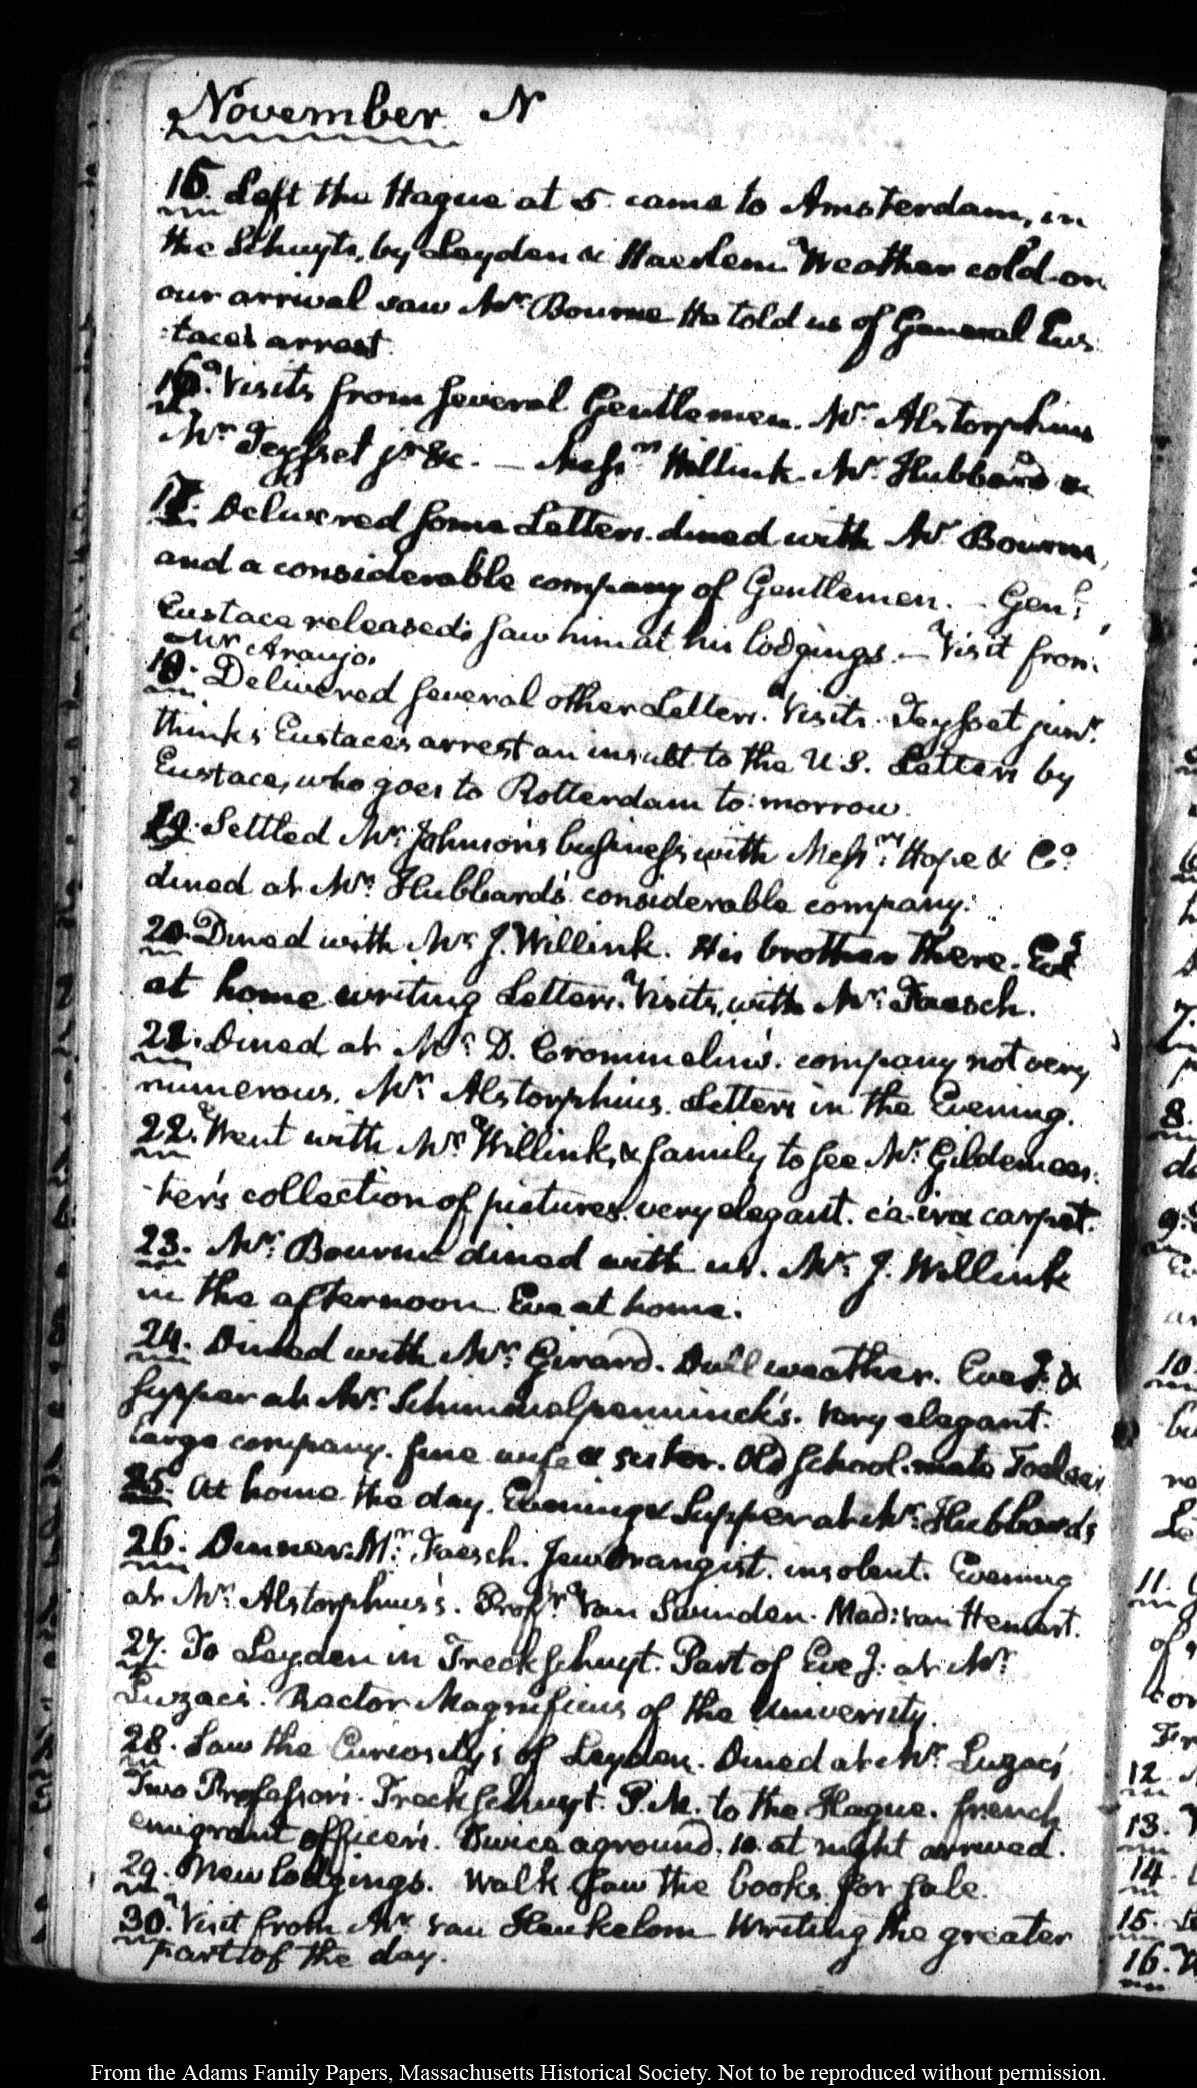 November N
15. Left the Hague at 5. came to Amsterdam, in
the Schuyts, by Leyden & Haerlem. Weather cold on
our arrival saw Mr. Bourne He told us of General Eus-
-tace's arrest.
16. Visits from several Gentlemen. Mr. Alstorphius
Mr. Teysset jr. &c. — Messrs. Willink. Mr. Hubbard &
17. Delivered some Letters. dined with Mr. Bourne,
and a considerable company of Gentlemen. — Genl.
Eustace released; saw him at his lodgings. — Visit from
Mr Araujo.
18. Delivered several other Letters. Visits. Teysset junr.
thinks Eustace's arrest an insult to the U.S. Letters by
Eustace, who goes to Rotterdam to-morrow.
19. Settled Mr. Johnson's business with Messrs. Hope & Co.
dined at Mr. Hubbard's considerable company.
20. Dined with Mr. J. Willink. His brother there. Eve
at home writing Letters. Visits, with Mr. Faesch.
21. Dined at Mr. D. Crommelin's. company not very
numerous. Mr. Alstorphius. Letters in the Evening.
22. Went with Mr. Willink, & family to see Mr. Gildemees-
-ter's collection of pictures. very elegant. ça-ira carpet.
23. Mr. Bourne dined with us. Mr. J. Willink
in the afternoon. Eve at home.
24. Dined with Mr. Girard. Dull weather. Eveg. &
supper at Mr. Schimmelpenninck's. very elegant.
large company. fine wife & sister. Old School-mate
25. At home the day. Evening & Supper at Mr. Hubbard's
26. Dinner. Mr. Faesch. Jew Orangist. insolent. Evening
at Mr. Alstorphius's. Profr. van Swinden. Mad: van Hemert.
27. To Leyden in Treckschuyt. Part of Eveg: at Mr.
Luzac's. Rector Magnificus of the University.
28. Saw the Curiosity's of Leyden. Dined at Mr. Luzac's
Two Professors. Treckschuyt. P.M. to the Hague. french
emigrant officers. Twice aground. 10. at night arrived.
29. New lodgings. Walk saw the books for sale.
30. Visit from Mr. van Heukelom Writing the greater
part of the day.
7.
8.
9.
10.
11.
12.
13.
14.
15.
16.
From the Adams Family Papers, Massachusetts Historical Society. Not to be reproduced without permission.